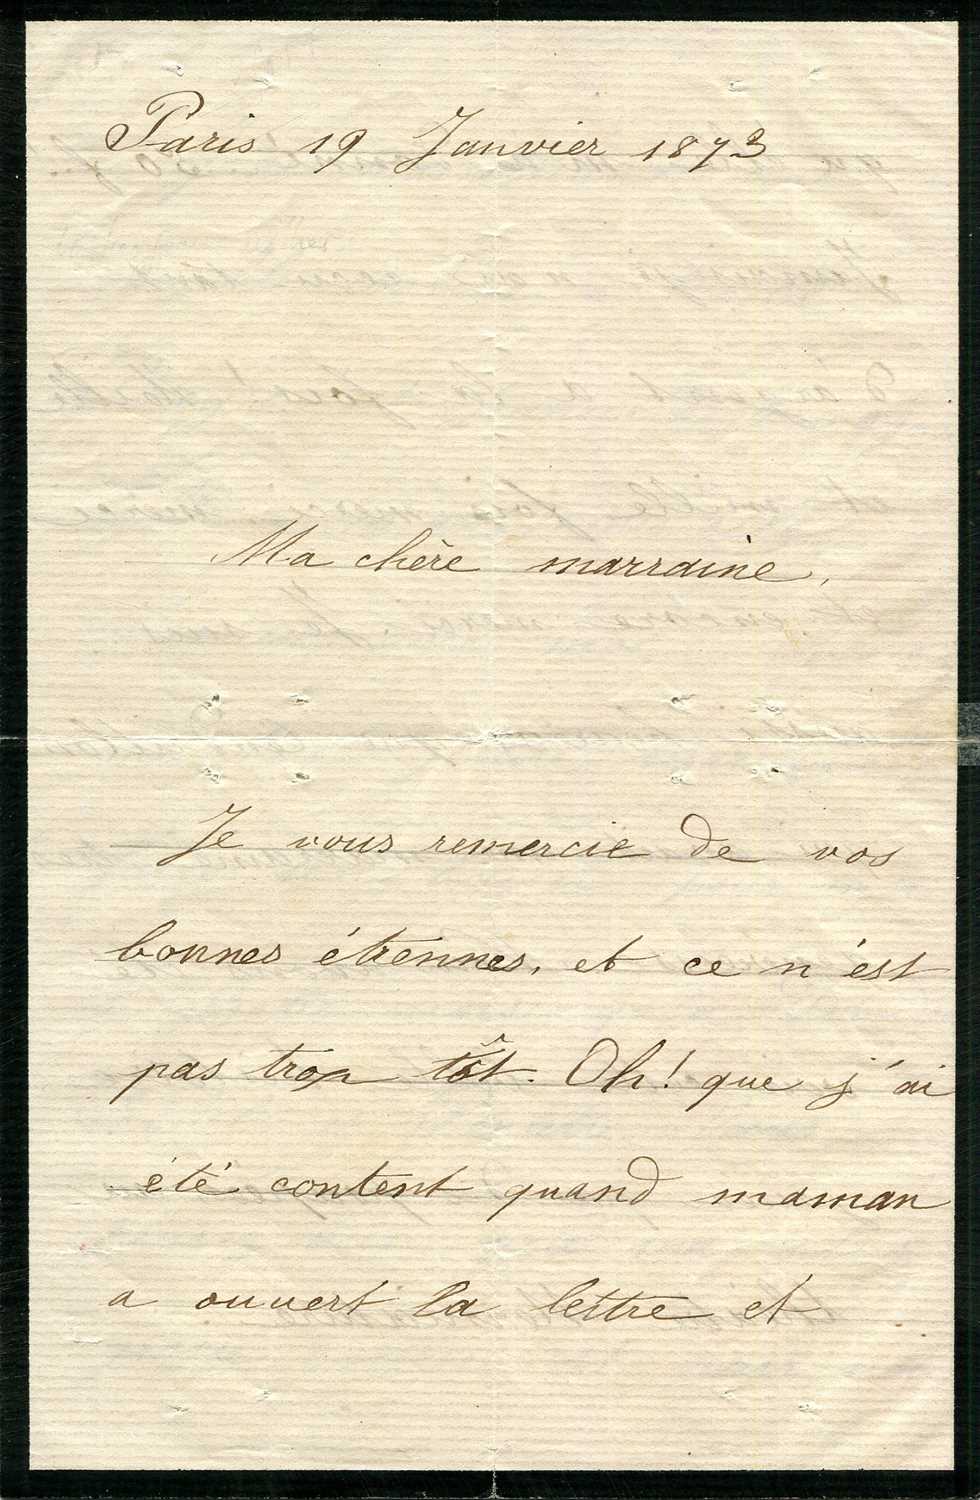 Paris 19 Janvier 1873
Ma chère marraine,
Je vous remercie de vos
bonnes étrennes, et ce n'est
pas trop tôt. Oh! que j'ai
été content quand maman
a ouvert la lettre et